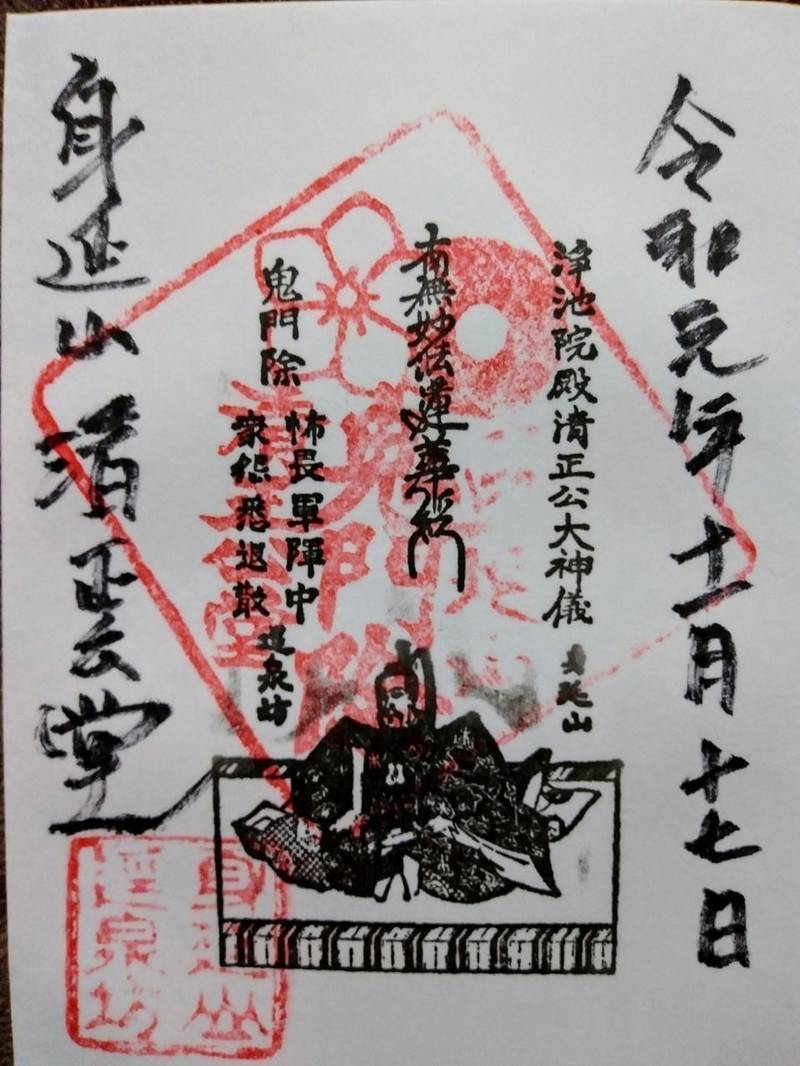 令和元年十一月十七日
浄池院殿清正公大神儀
身延山
南無妙法蓮華経
鬼門除
怖長軍陣中
衆怨悉退散
逕泉坊
身延山 清正公堂
鬼門除
清正公堂
身延山
逕泉坊